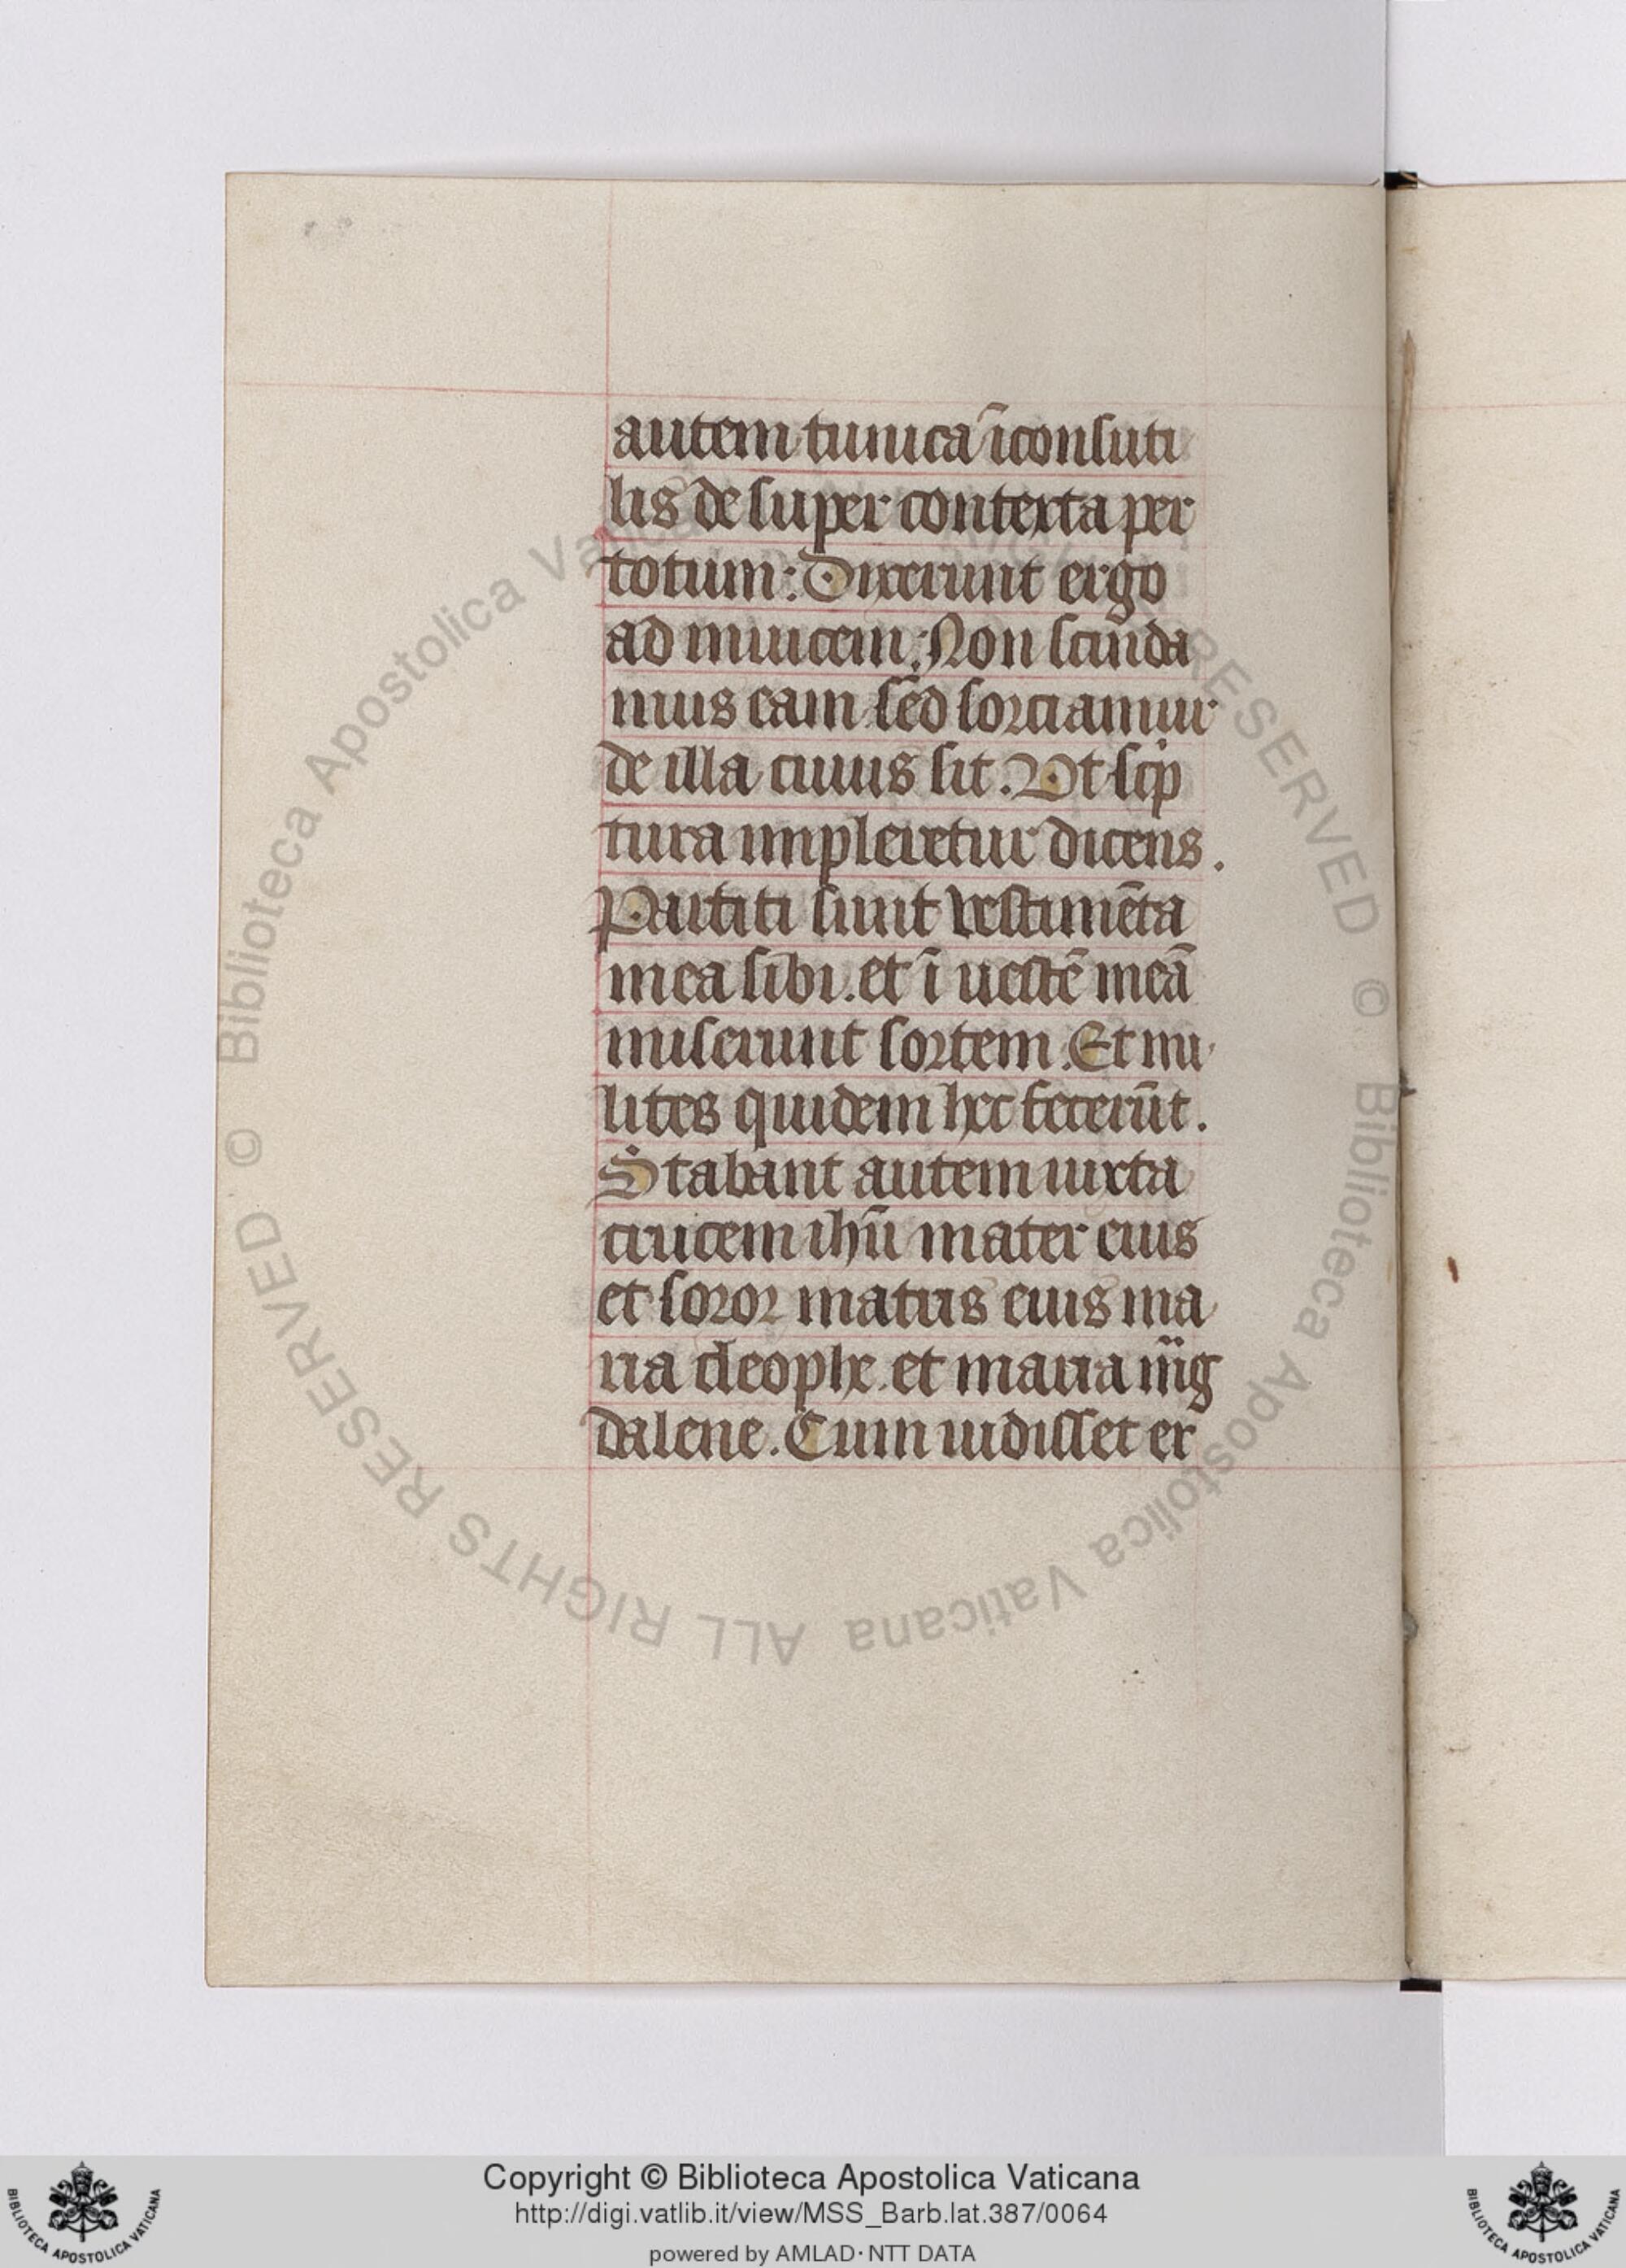 autem tunica īconsuti
lis desuper contexta per
totum: Dixerunt ergo
ad inuicem: Non scinda
mus eam sed sorciamur
de illa cuius sit. Vt scͥp
tura impleretur dicens.
Partiti sunt vestimēta
mea sibi. et ī uestē meā
miserunt sortem. Et mi
lites quidem hec fecerūt.
Stabant autem iuxta
crucem ihū mater eius
et soror matris eius ma
ria cleophe. et maria mag
dalene. Cum uidisset er
© Biblioteca Apostolica Vaticana ALL RIGHTS RESERVED © Biblioteca Apostolica Vaticana ALL RIGHTS RESERVED
Copyright © Biblioteca Apostolica Vaticana
http://digi.vatlib.it/view/MSS_Barb.lat.387/0064
powered by AMLAD·NTT DATA
BIBLIOTECA APOSTOLICA VATICANA
BIBLIOTECA APOSTOLICA VATICANA